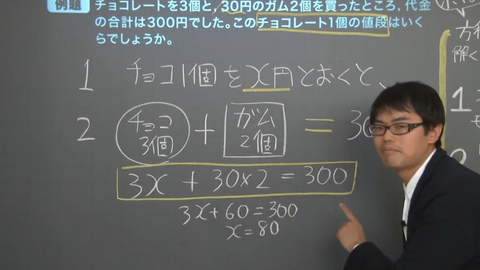 例題
チョコレートを3個と、30円のガム2個を買ったところ、代金
の合計は300円でした。このチョコレート1個の値段はいく
らでしょうか。
1 チョコ1個をx円とおくと、
2 チョコ3個 + ガム2個 = 30
3x + 30×2 = 300
3x+60=300
x=80
方程
解く
1